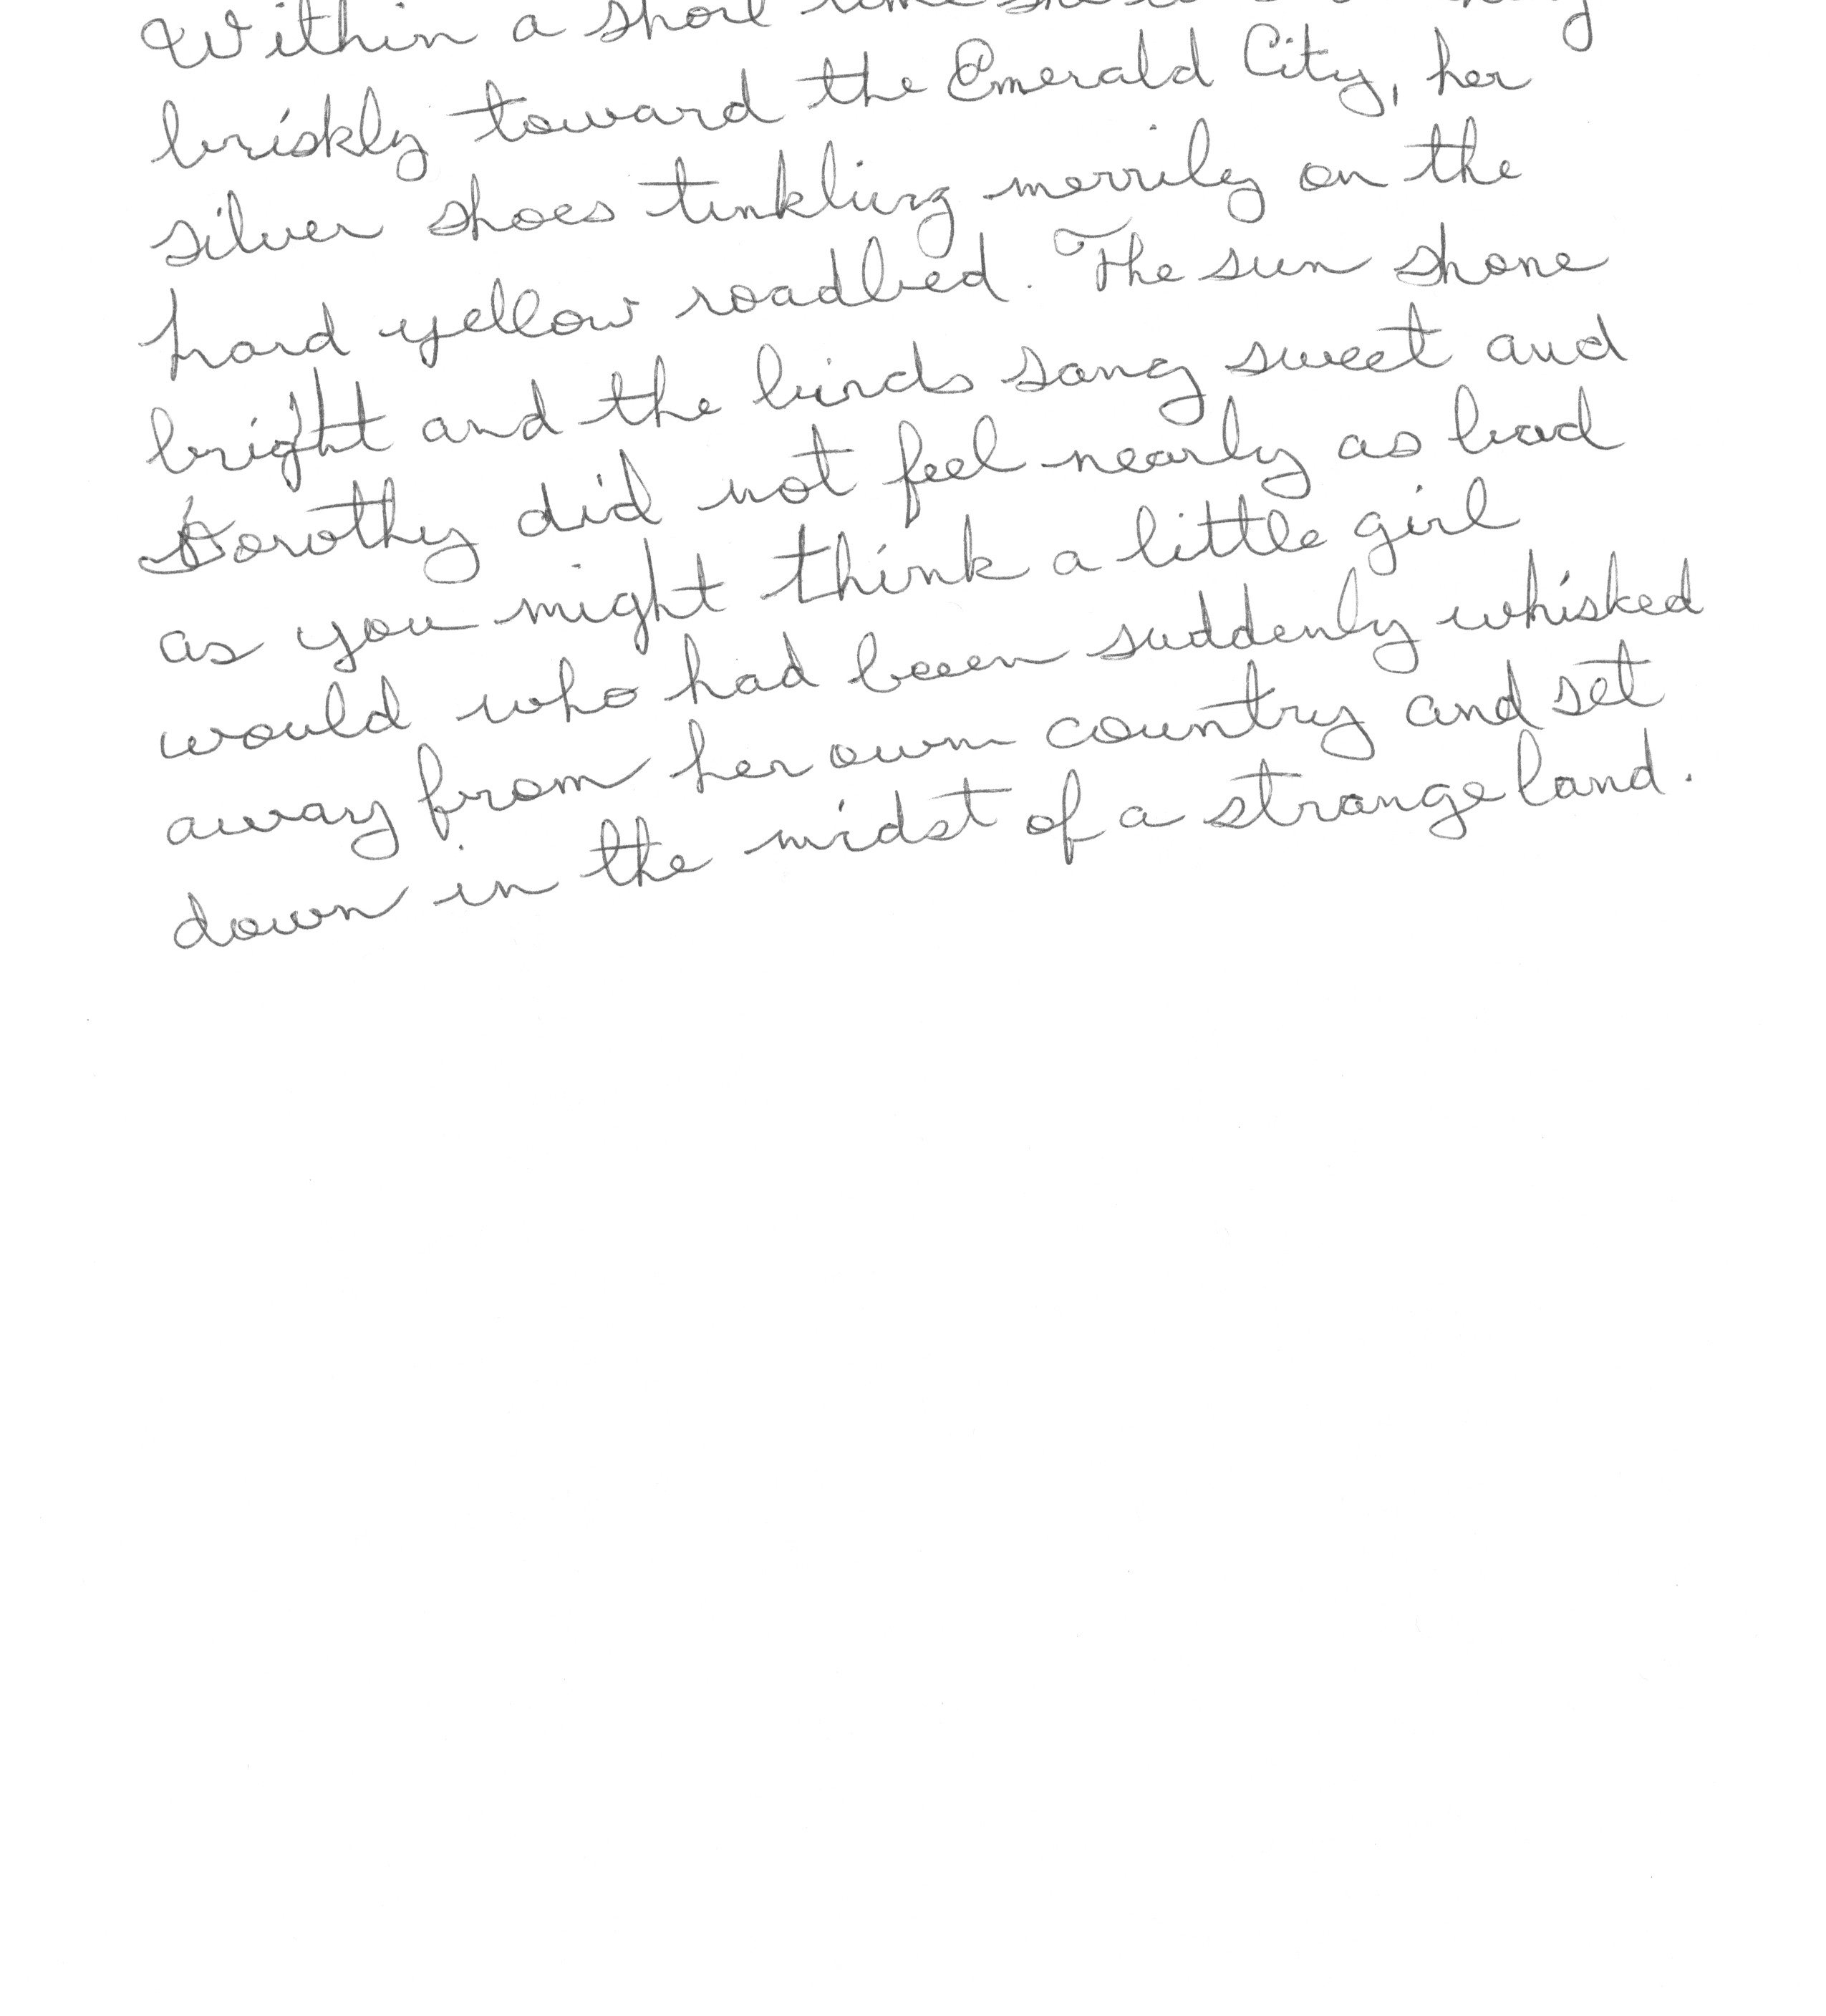 Within a short time she
briskly toward the Emerald City, her
silver shoes tinkling merrily on the
hard yellow roadbed. The sun shone
bright and the birds sang sweet and
Dorothy did not feel nearly as bad
as you might think a little girl
would who had been suddenly whisked
away from her own country and set
down in the midst of a strange land.